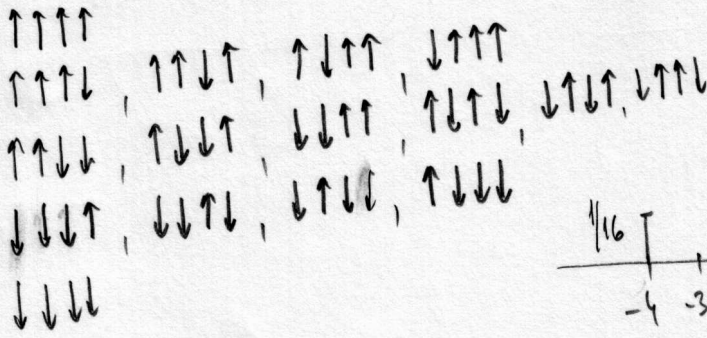 ↑↑↑↑
↑↑↑↓ , ↑↑↓↑ , ↑↓↑↑ , ↓↑↑↑
↑↑↓↓ , ↑↓↓↑ , ↓↓↑↑ , ↑↓↑↓ , ↓↑↓↑ , ↓↑↑↓
↓↓↓↑ , ↓↓↑↓ , ↓↑↓↓ , ↑↓↓↓
↓↓↓↓
1/16
-4 -3